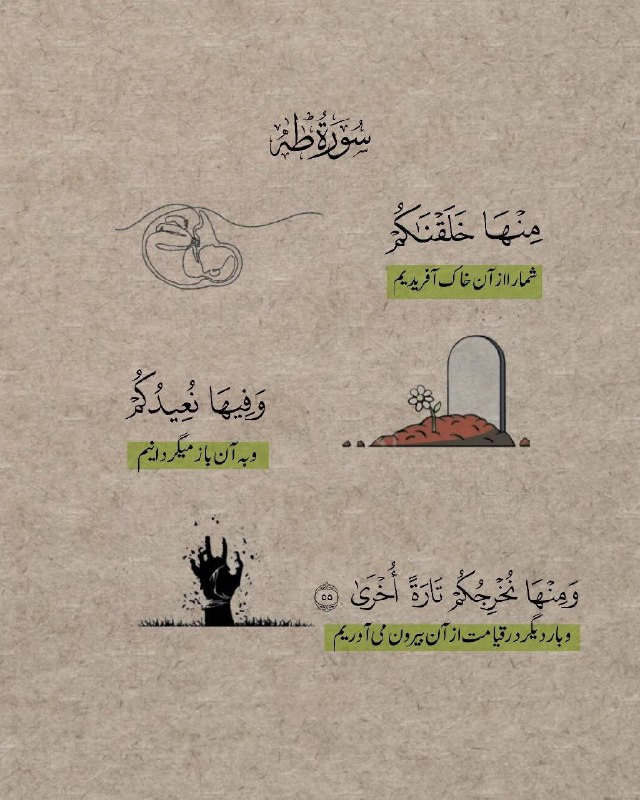 سُورَةُ طٰهٰ
مِنْهَا خَلَقْنَاكُمْ
شما را از آن خاک آفریدیم
وَفِيهَا نُعِيدُكُمْ
و به آن باز میگردانیم
وَمِنْهَا نُخْرِجُكُمْ تَارَةً أُخْرَىٰ ۝٥٥
و بار دیگر در قیامت از آن بیرون می آوریم